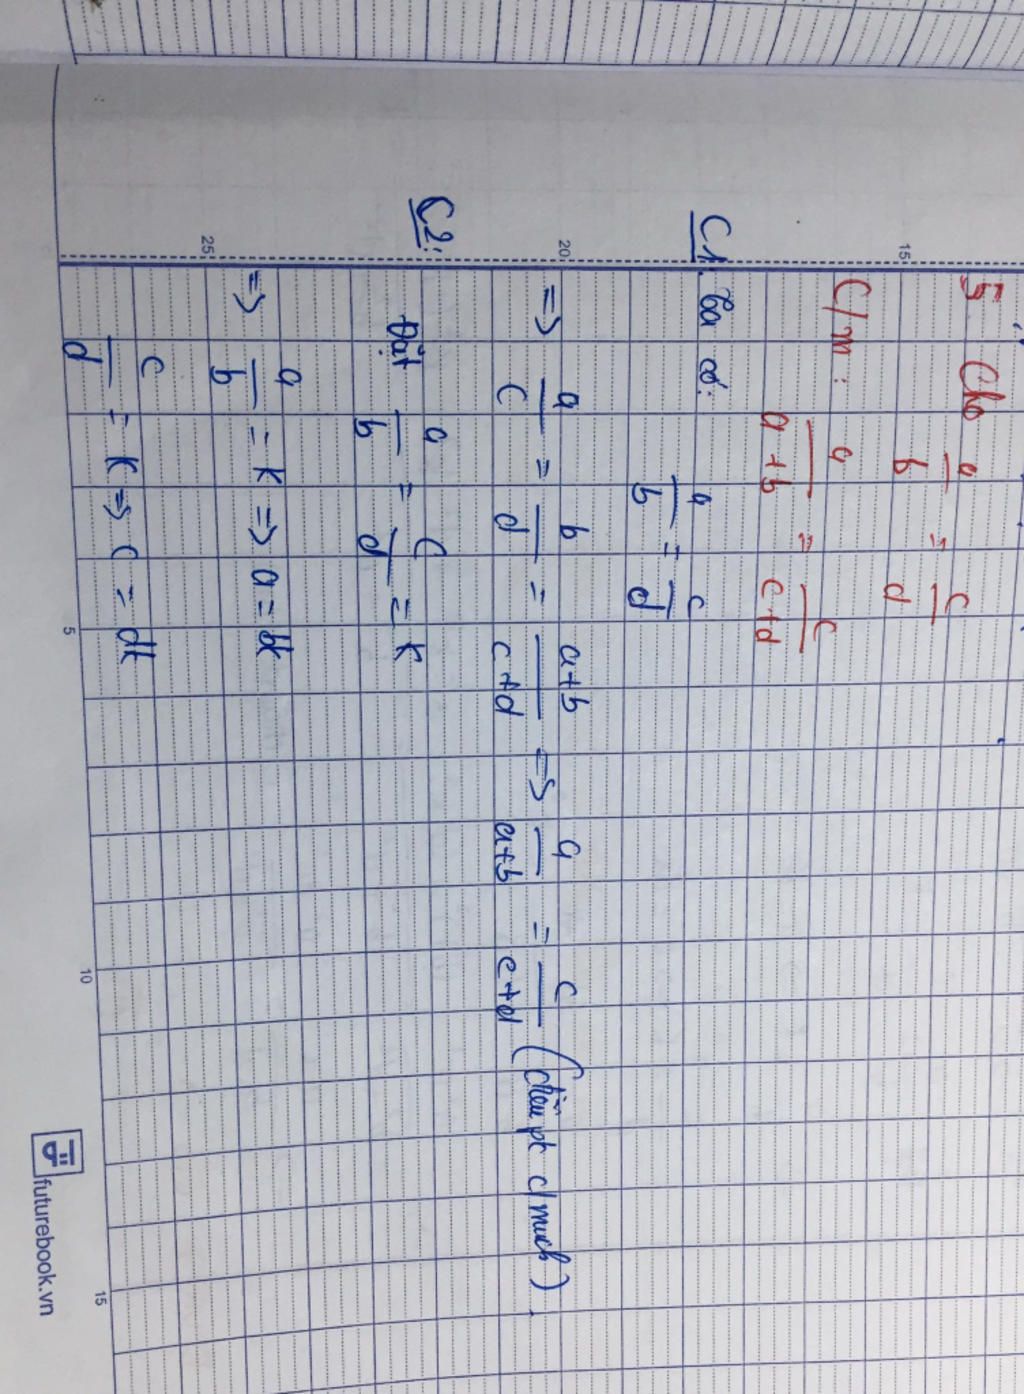 5 Cho a/b = c/d
C/m: a/a+b = c/c+d
C1. Ta có: a/b = c/d
=> a/c = b/d = a+b/c+d => a/a+b = c/c+d (điều pt c/minh).
C2: Đặt a/b = c/d = k
=> a/b = k => a = bk
c/d = k => c = dk
15
20
25
5
10
15
futurebook.vn